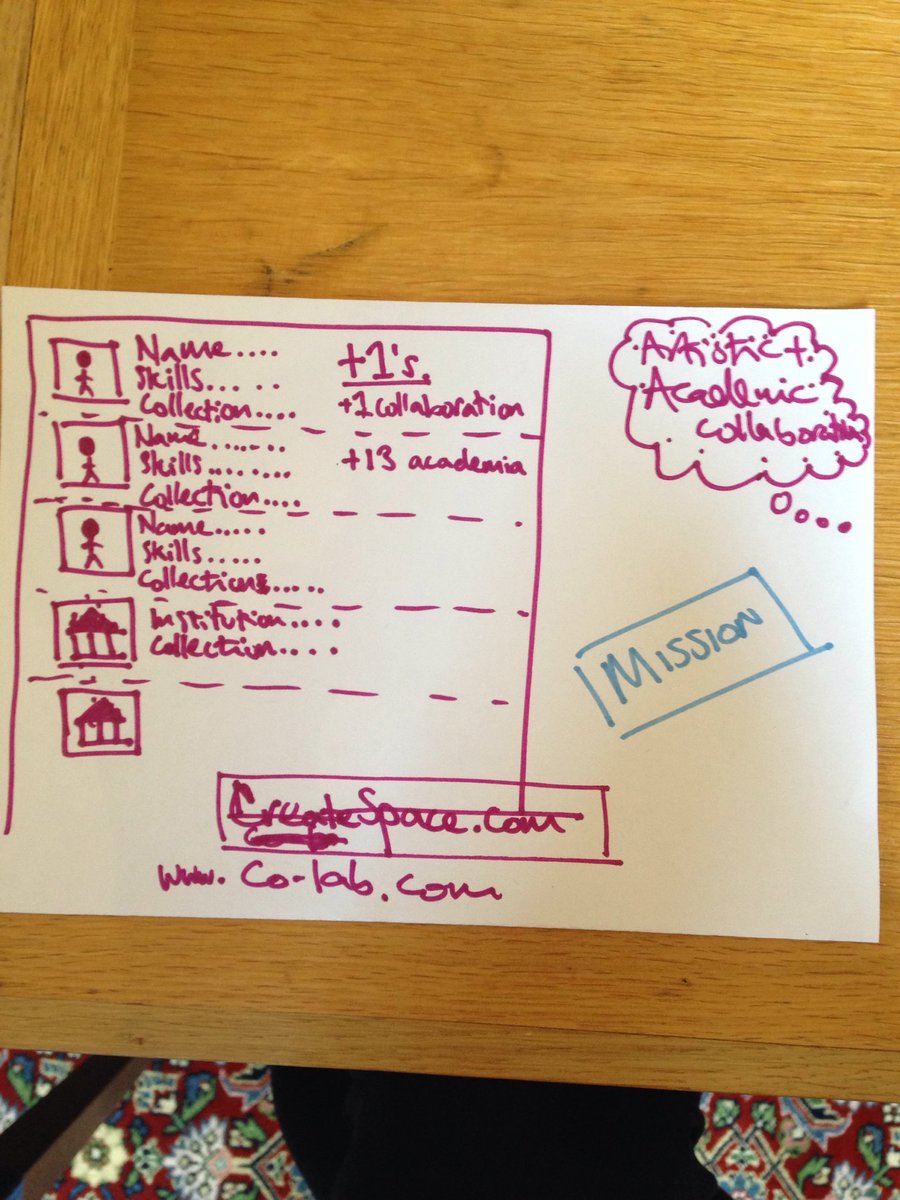 Name....
Skills.... .
Collection....
+1's.
+1 collaboration
Name.......
Skills.......
Collection....
+13 academia
Name.....
Skills.....
Collections.....
Institution....
Collection....
CreateSpace.com
www.co-lab.com
Artistic +
Academic
collaboration
Mission